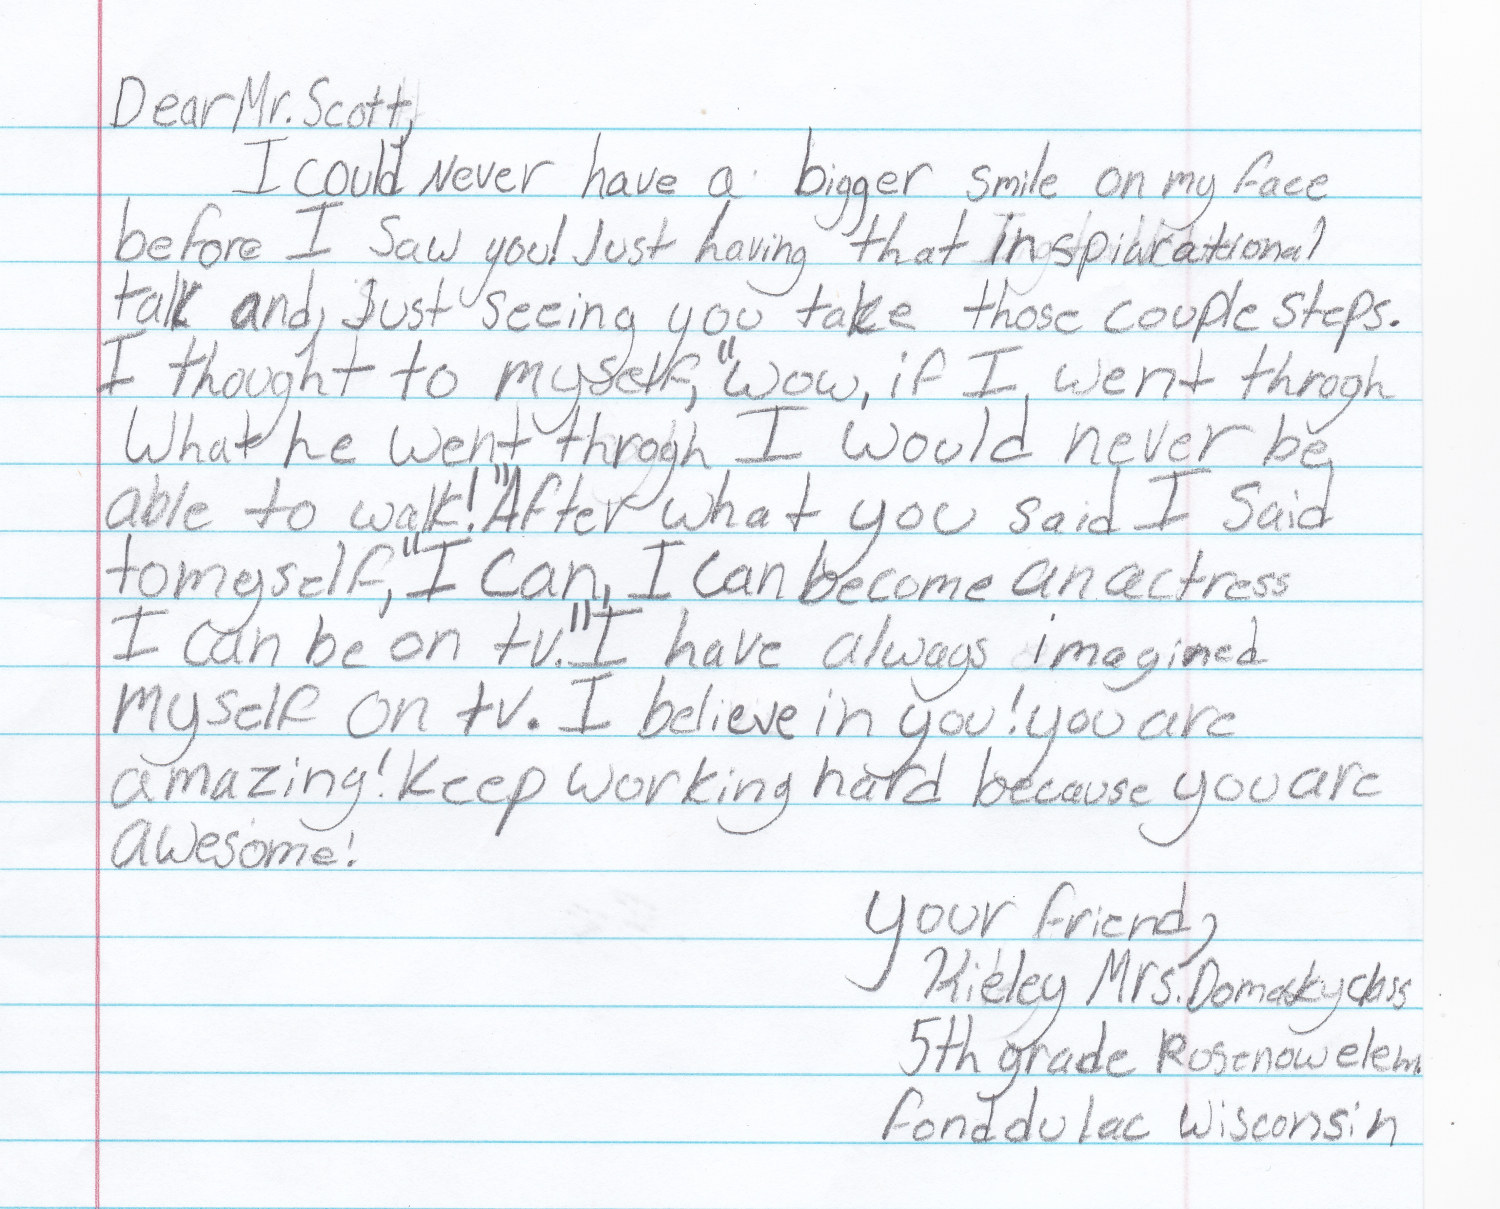 Dear Mr. Scott,
I could Never have a bigger smile on my face
before I saw you! Just having that inspiarational
talk and, Just seeing you take those couple steps.
I thought to myself, "Wow, if I went throgh
What he went throgh I would never be
able to walk!" After what you said I said
to myself, "I can, I can become an actress
I can be on tv." I have always imagined
myself on tv. I believe in you! you are
amazing! Keep working hard because you are
awesome!
your friend,
Kieley Mrs. Domasky class
5th grade Rosenow elem.
fond du lac Wisconsin